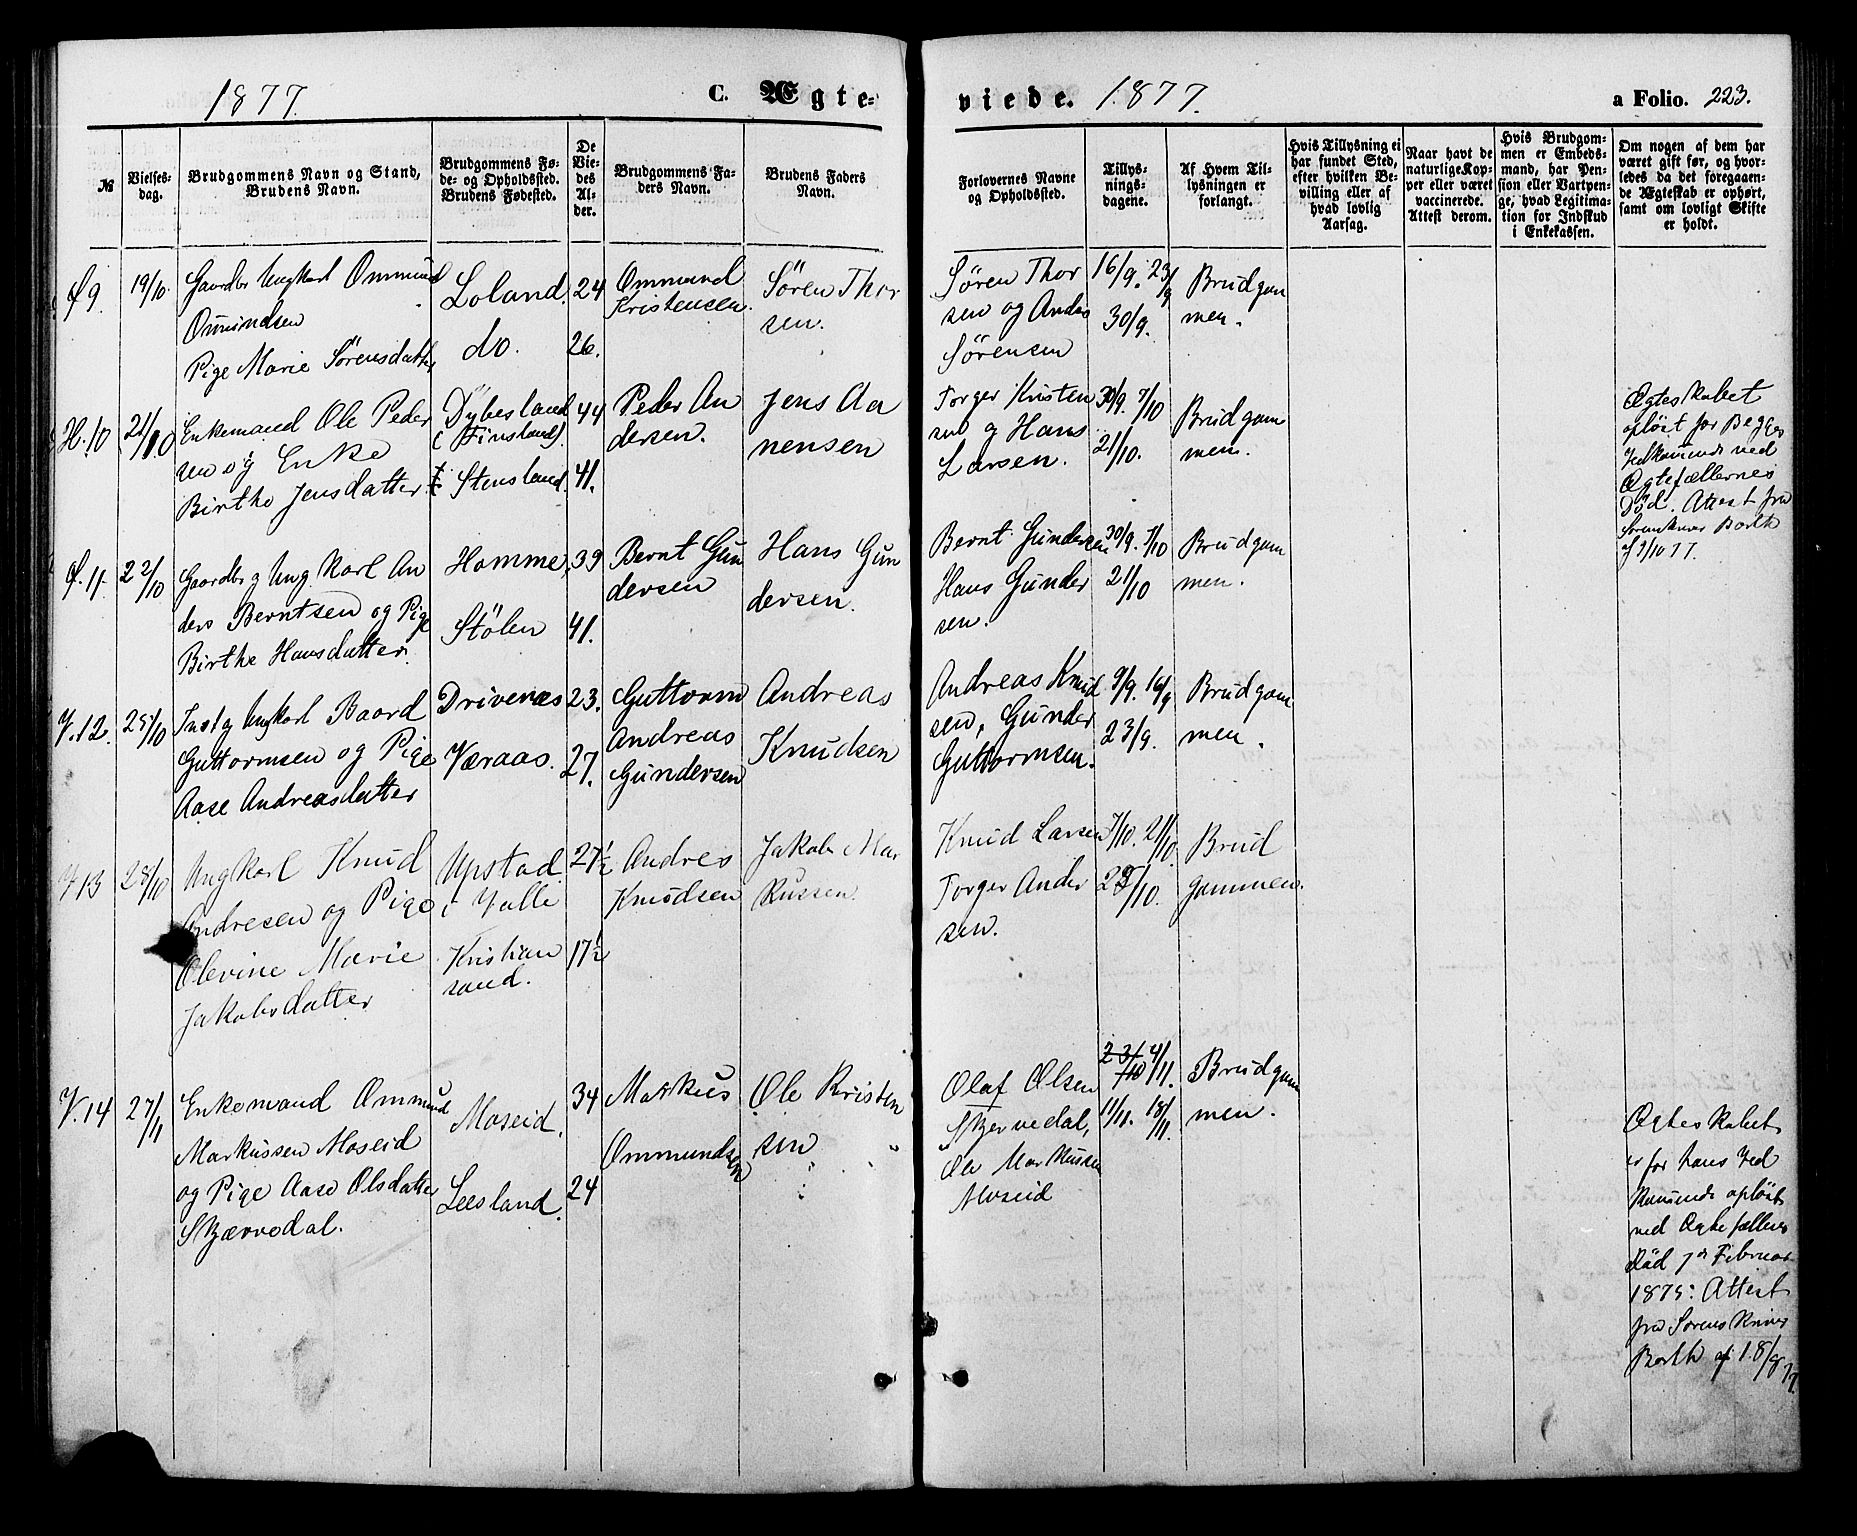 1877. C. Ægte=
viede. 1877. a Folio. 223.
№
Vielses-
dag.
Brudgommens Navn og Stand,
Brudens Navn.
Brudgommens Fø-
de- og Opholdssted.
Brudens Fødested.
De
Vie-
des
Al-
der.
Brudgommens Fa-
ders Navn.
Brudens Faders
Navn.
Forlovernes Navne
og Opholdssted.
Tillys-
nings-
dagene.
Af Hvem Til-
lysningen er
forlangt.
Hvis Tillysning ei
har fundet Sted,
efter hvilken Be-
villing eller af
hvad lovlig
Aarsag.
Naar havt de
naturlige Kop-
per eller været
vaccinerede.
Attest derom.
Hvis Brudgom-
men er Embeds-
mand, har Pen-
sion eller Vartpen-
ge, hvad Legitima-
tion for Indskud
i Enkekassen.
Om nogen af dem har
været gift før, og hvor-
ledes da det foregaaen-
de Ægteskab er ophørt,
samt om lovligt Skifte
er holdt.
Ø 9.
19/10.
Gaardbr Ungkarl Ommund
Omundsen
Pige Marie Sörensdatter
Loland.
do.
24
26.
Ommund
Kristensen.
Sören Thor
sen.
Sören Thor
sen og Andas
Sörensen
16/9. 23/9
30/9.
Brudgom
men.
H. 10
21/10
Enkemand Ole Peder
sen og Enke
Birthe Jensdatter
Dybesland
(Finsland).
Stensland.
44
41.
Peder An
dersen.
Jens Aa
nensen
Torger Kristen
sen og Hans
Larsen.
30/9. 7/10
21/10.
Brudgom
men.
Ægteskabet
opløst for Begges
Vedkomende ved
Ægtefællernes
Död. Attest fra
Sorenskriver Barth
af 9/10 77.
Ø. 11.
22/10
Gaardbr og Ungkarl An
ders Berntsen og Pige
Birthe Hansdatter.
Homme,
Stölen
39
41.
Bernt Gun
dersen
Hans Gun
dersen.
Bernt Gundersen
Hans Gunder
sen.
30/9. 7/10
21/10
Brudgom
men.
V. 12.
25/10
Inst og Ungkarl Baard
Guttormsen og Pige
Aase Andreasdatter
Drivenæs
Væraas.
23.
27.
Guttorm
Andreas
Gundersen
Andreas
Knudsen
Andreas Knud
sen, Gunder
Guttormsen.
9/9. 16/9
23/9.
Brudgom
men.
V 13
28/10
Ungkarl Knud
Andresen og Pige
Olevine Marie
Jakobsdatter
Upstad
i Valle
Kristian
sand.
27½
17½
Andres
Knudsen
Jakob Mar
kussen.
Knud Larsen
Torger Ander
sen.
7/10. 21/10.
28/10.
Brud
gommen.
V. 14
27/11
Enkemand Ommund
Markussen Moseid
og Pige Aase Olsdatter
Skjærvedal.
Moseid.
Leesland.
34
24
Markus
Ommundsen
Ole Kristen
sen
Olaf Olsen
Skjervedal,
Ole Markussen
Moseid
23/10 4/11.
11/11. 18/11.
Brudgom
men.
Ægteskabet
er for hans Ved
kommende opløst
ved Ægtefællens
Död 7de Februar
1875: Attest
fra Sorenskriver
Barth af 18/8 77.